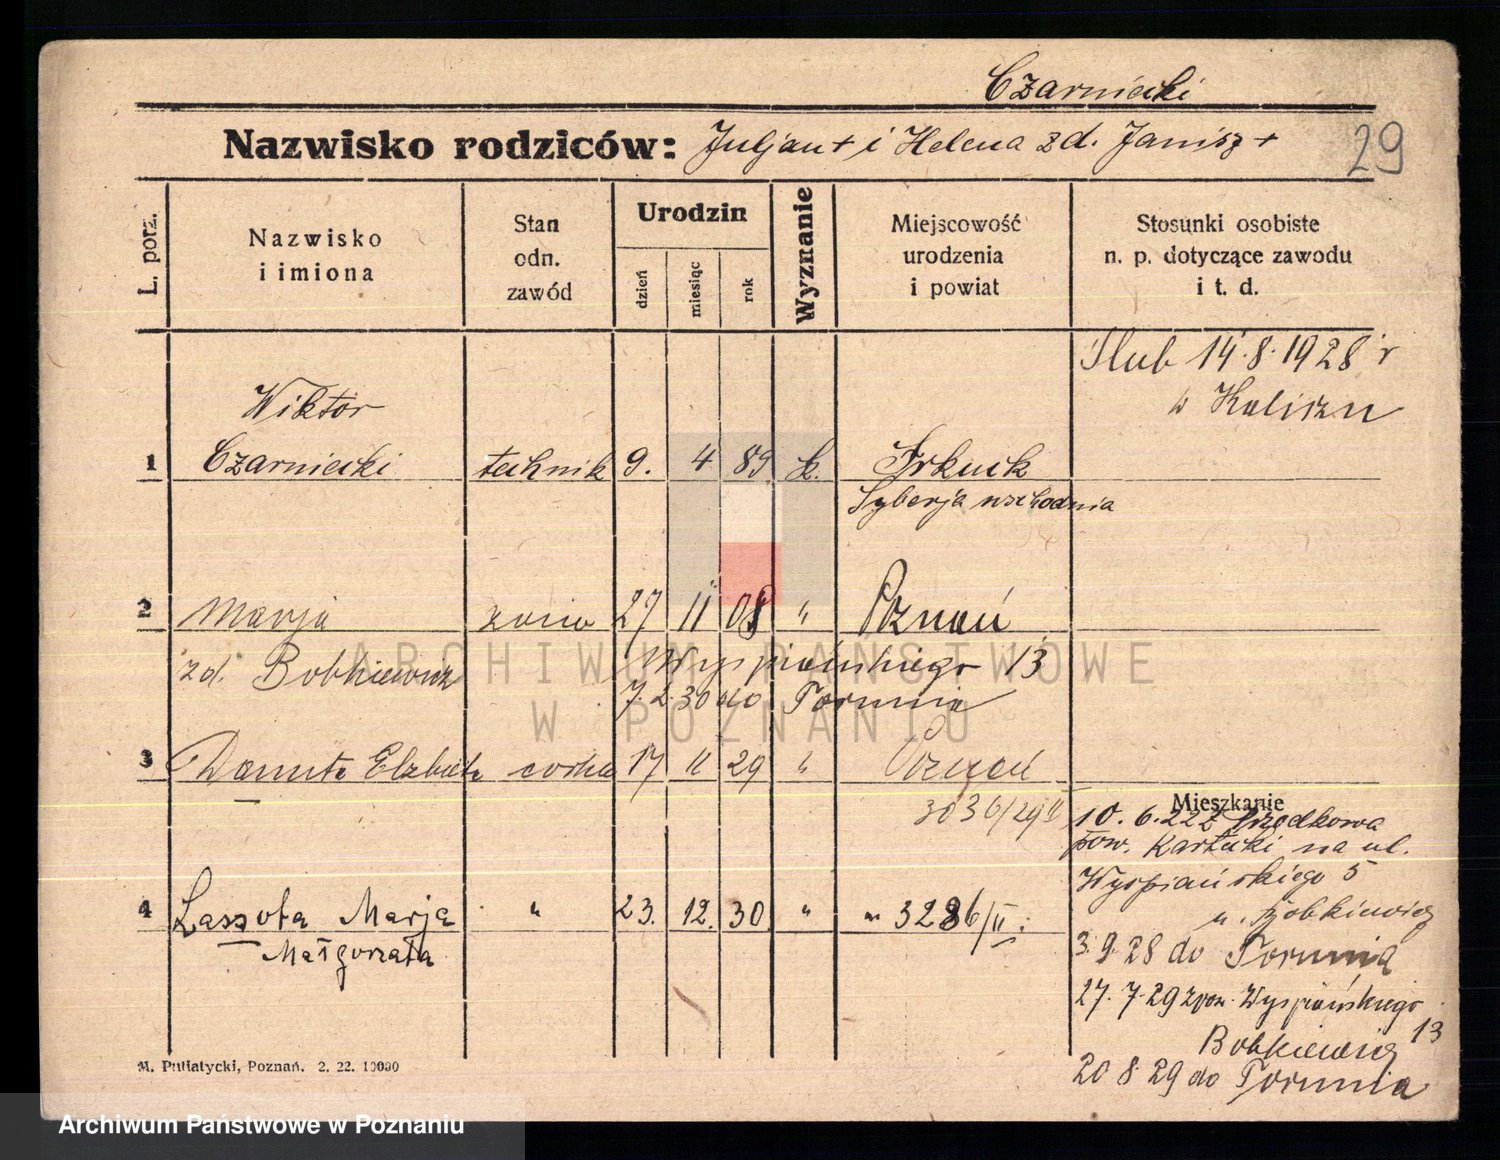 Czarniecki
Nazwisko rodziców: Juljan + i Helena zd. Janisz +
29
L. porz.
Nazwisko i imiona
Stan odn. zawód
Urodzin
dzień
miesiąc
rok
Wyznanie
Miejscowość urodzenia i powiat
Stosunki osobiste n. p. dotyczące zawodu i t. d.
Ślub 14.8.1928 r
w Kaliszu
Wiktor
1 Czarniecki technik 9. 4 89 k. Irkuck
Syberja wschodnia
2 Marja żona 27 11 08 " Poznań
zd. Bobkiewicz Wyspiańskiego 13
7.2.30 do Torunia
3 Danuta Elżbieta córka 17 11 29 " Poznań
3036/29 II
Mieszkanie
10.6.22 z
pow. Kartuski na ul.
Wyspiańskiego 5
u. Bobkiewicz
4 Lassota Marja " 23. 12. 30 " " 3286/II.
Małgorzata
3.9.28 do Torunia
27.7.29 zpow. Wyspiańskiego 13
Bobkiewicz
20.8.29 do Torunia
M. Putiatycki, Poznań. 2. 22. 10000
ARCHIWUM PAŃSTWOWE
W POZNANIU
Archiwum Państwowe w Poznaniu